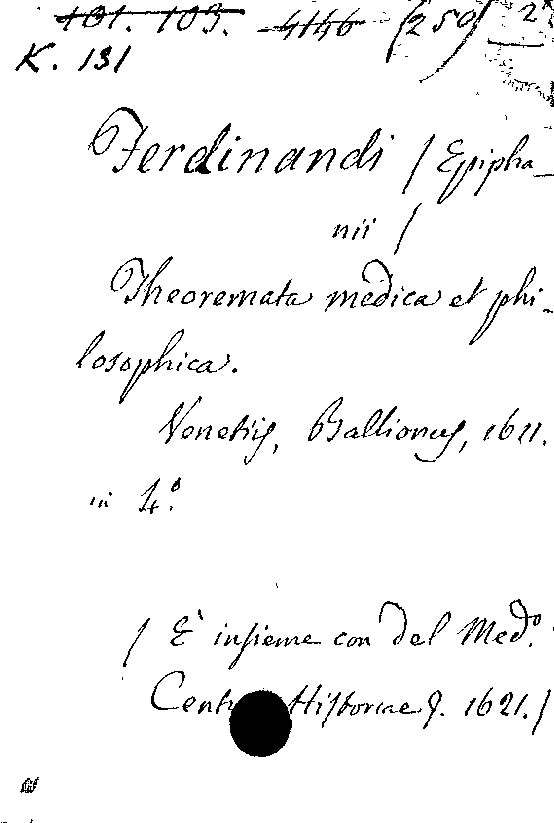 101. 103. 4146 (250) 2
K. 131
Ferdinandi / Epipha_
nii /
Theoremata medica et phi-
losophica.
Venetiis, Ballionus, 1611.
in 4.º
/ È insieme con del Med.º
Cent Historiae &. 1621. /